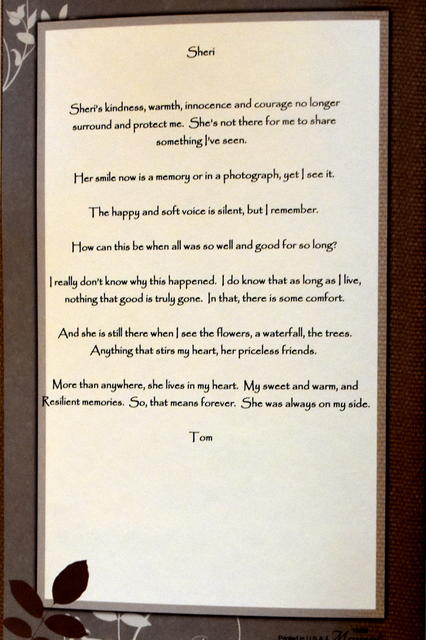 Sheri
Sheri's kindness, warmth, innocence and courage no longer
surround and protect me. She's not there for me to share
something I've seen.
Her smile now is a memory or in a photograph, yet I see it.
The happy and soft voice is silent, but I remember.
How can this be when all was so well and good for so long?
I really don't know why this happened. I do know that as long as I live,
nothing that good is truly gone. In that, there is some comfort.
And she is still there when I see the flowers, a waterfall, the trees.
Anything that stirs my heart, her priceless friends.
More than anywhere, she lives in my heart. My sweet and warm, and
Resilient memories. So, that means forever. She was always on my side.
Tom
Printed in U.S.A.